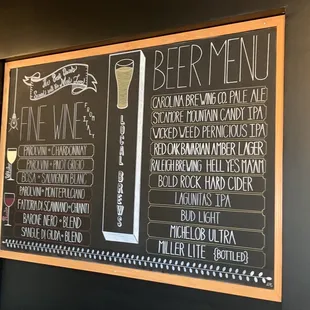 FINE WINE
FROM ITALY
WHITE
PAROLVINI + CHARDONNAY
MARCO VINI + PINOT GRIGIO
BOSSA + SAUVIGNON BLANC
PAROLVINI + MONTEPULCIANO
FATTORIA SCANNANO + CHIANTI
BARONE NERO + BLEND
SANGUE DI GIUDA + BLEND
LOCAL BREWS
BEER MENU
CAROLINA BREWING CO. PALE ALE
SYCAMORE MOUNTAIN CANDY IPA
WICKED WEED PERNICIOUS IPA
RED OAK BAVARIAN AMBER LAGER
RALEIGH BREWING HELL YES MA'AM
BOLD ROCK HARD CIDER
LAGUNITAS IPA
BUD LIGHT
MICHELOB ULTRA
MILLER LITE {BOTTLED}